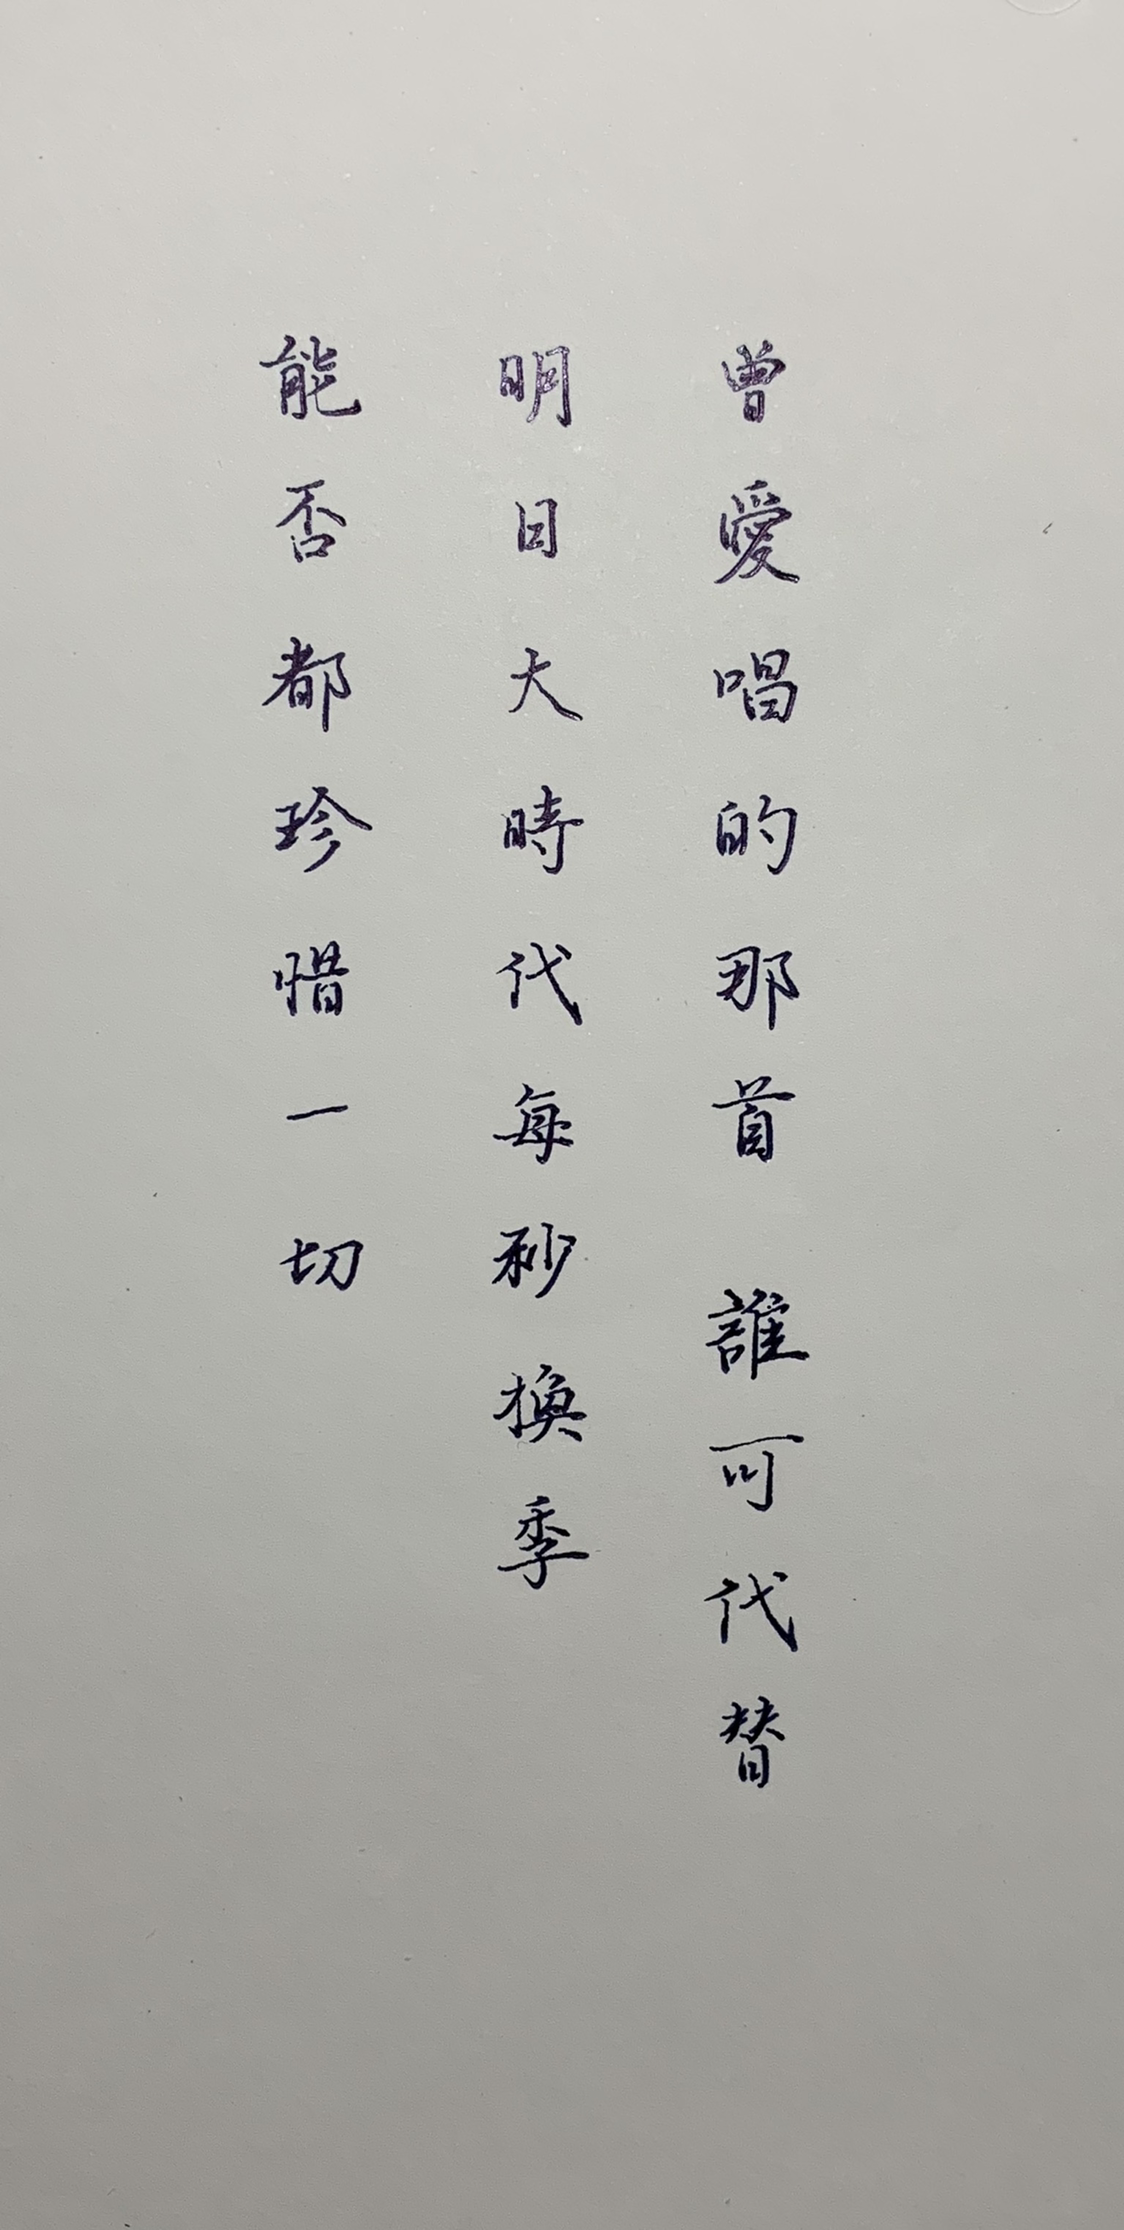 曾愛唱的那首 誰可代替
明日大時代每秒換季
能否都珍惜一切